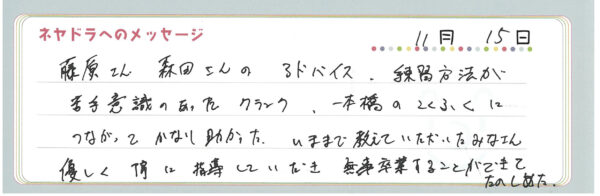 ネヤドラへのメッセージ
11月 15日
藤原さん 森田さんの アドバイス、練習方法が
苦手意識のあった クランク、一本橋の こくふくに
つながって かなり 助かった. いままで教えていただいたみなさん
優しく 丁寧に 指導していただき 無事卒業することができて
たのしめた.